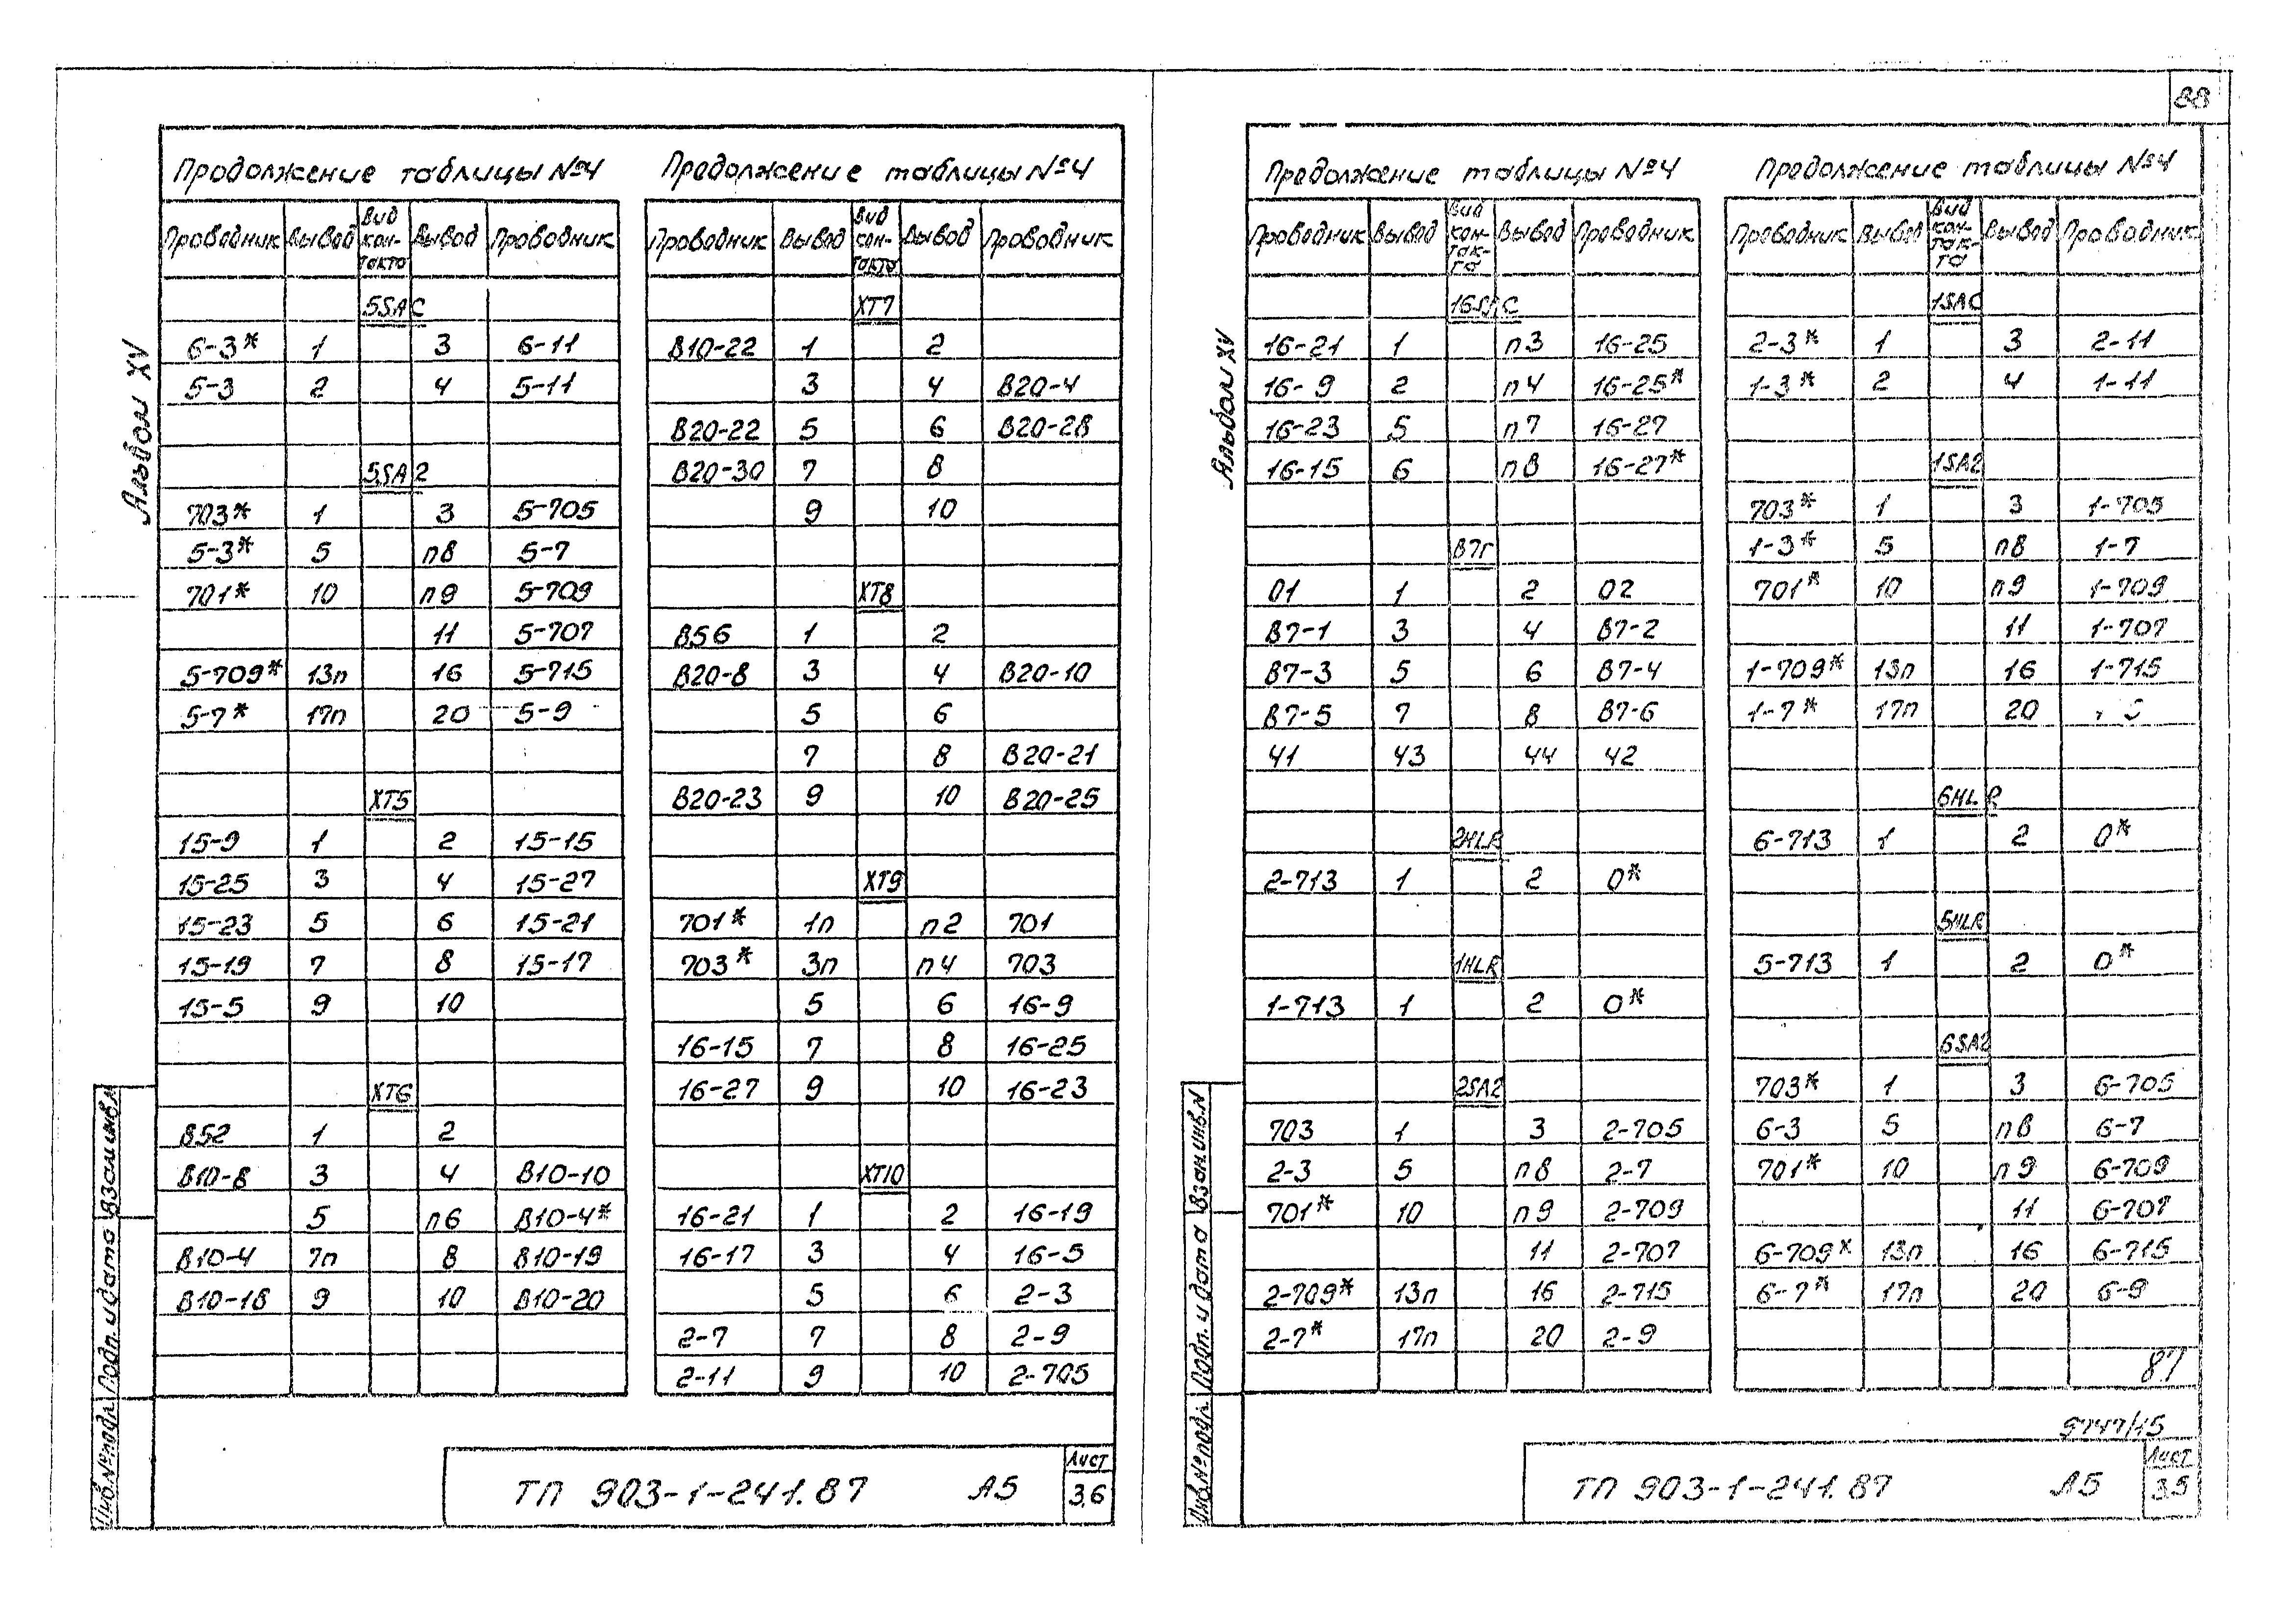 88
Альбом XV
Продолжение таблицы №4
Проводник Вывод Вид кон-такта Вывод Проводник
5SAC
6-3* 1 3 6-11
5-3 2 4 5-11
5SA2
703* 1 3 5-705
5-3* 5 п8 5-7
701* 10 п9 5-709
11 5-707
5-709* 13п 16 5-715
5-7* 17п 20 5-9
XT5
15-9 1 2 15-15
15-25 3 4 15-27
15-23 5 6 15-21
15-19 7 8 15-17
15-5 9 10
XT6
В52 1 2
В10-8 3 4 В10-10
5 п6 В10-4*
В10-4 7п 8 В10-19
В10-18 9 10 В10-20
Продолжение таблицы №4
Проводник Вывод Вид кон-такта Вывод Проводник
XT7
В10-22 1 2
3 4 В20-4
В20-22 5 6 В20-28
В20-30 7 8
9 10
XT8
В56 1 2
В20-8 3 4 В20-10
5 6
7 8 В20-21
В20-23 9 10 В20-25
XT9
701* 1п п2 701
703* 3п п4 703
5 6 16-9
16-15 7 8 16-25
16-27 9 10 16-23
XT10
16-21 1 2 16-19
16-17 3 4 16-5
5 6 2-3
2-7 7 8 2-9
2-11 9 10 2-705
Инв.№подл. Подп. и дата Взам.инв.№
ТП 903-1-241.87 А5
Лист
3.6
Альбом XV
Продолжение таблицы №4
Проводник Вывод Вид кон-так-та Вывод Проводник
16SAC
16-21 1 п3 16-25
16-9 2 п4 16-25*
16-23 5 п7 16-27
16-15 6 п8 16-27*
В7г
01 1 2 02
В7-1 3 4 В7-2
В7-3 5 6 В7-4
В7-5 7 8 В7-6
41 43 44 42
2HLR
2-713 1 2 0*
1HLR
1-713 1 2 0*
2SA2
703 1 3 2-705
2-3 5 п8 2-7
701* 10 п9 2-709
11 2-707
2-709* 13п 16 2-715
2-7* 17п 20 2-9
Продолжение таблицы №4
Проводник Вывод Вид кон-так-та Вывод Проводник
1SAC
2-3* 1 3 2-11
1-3* 2 4 1-11
1SA2
703* 1 3 1-705
1-3* 5 п8 1-7
701* 10 п9 1-709
11 1-707
1-709* 13п 16 1-715
1-7* 17п 20
6HLR
6-713 1 2 0*
5HLR
5-713 1 2 0*
6SA2
703* 1 3 6-705
6-3 5 п8 6-7
701* 10 п9 6-709
11 6-707
6-709* 13п 16 6-715
6-7* 17п 20 6-9
87
9747/15
Инв.№подл. Подп. и дата Взам.инв.№
ТП 903-1-241.87 А5
Лист
3.5